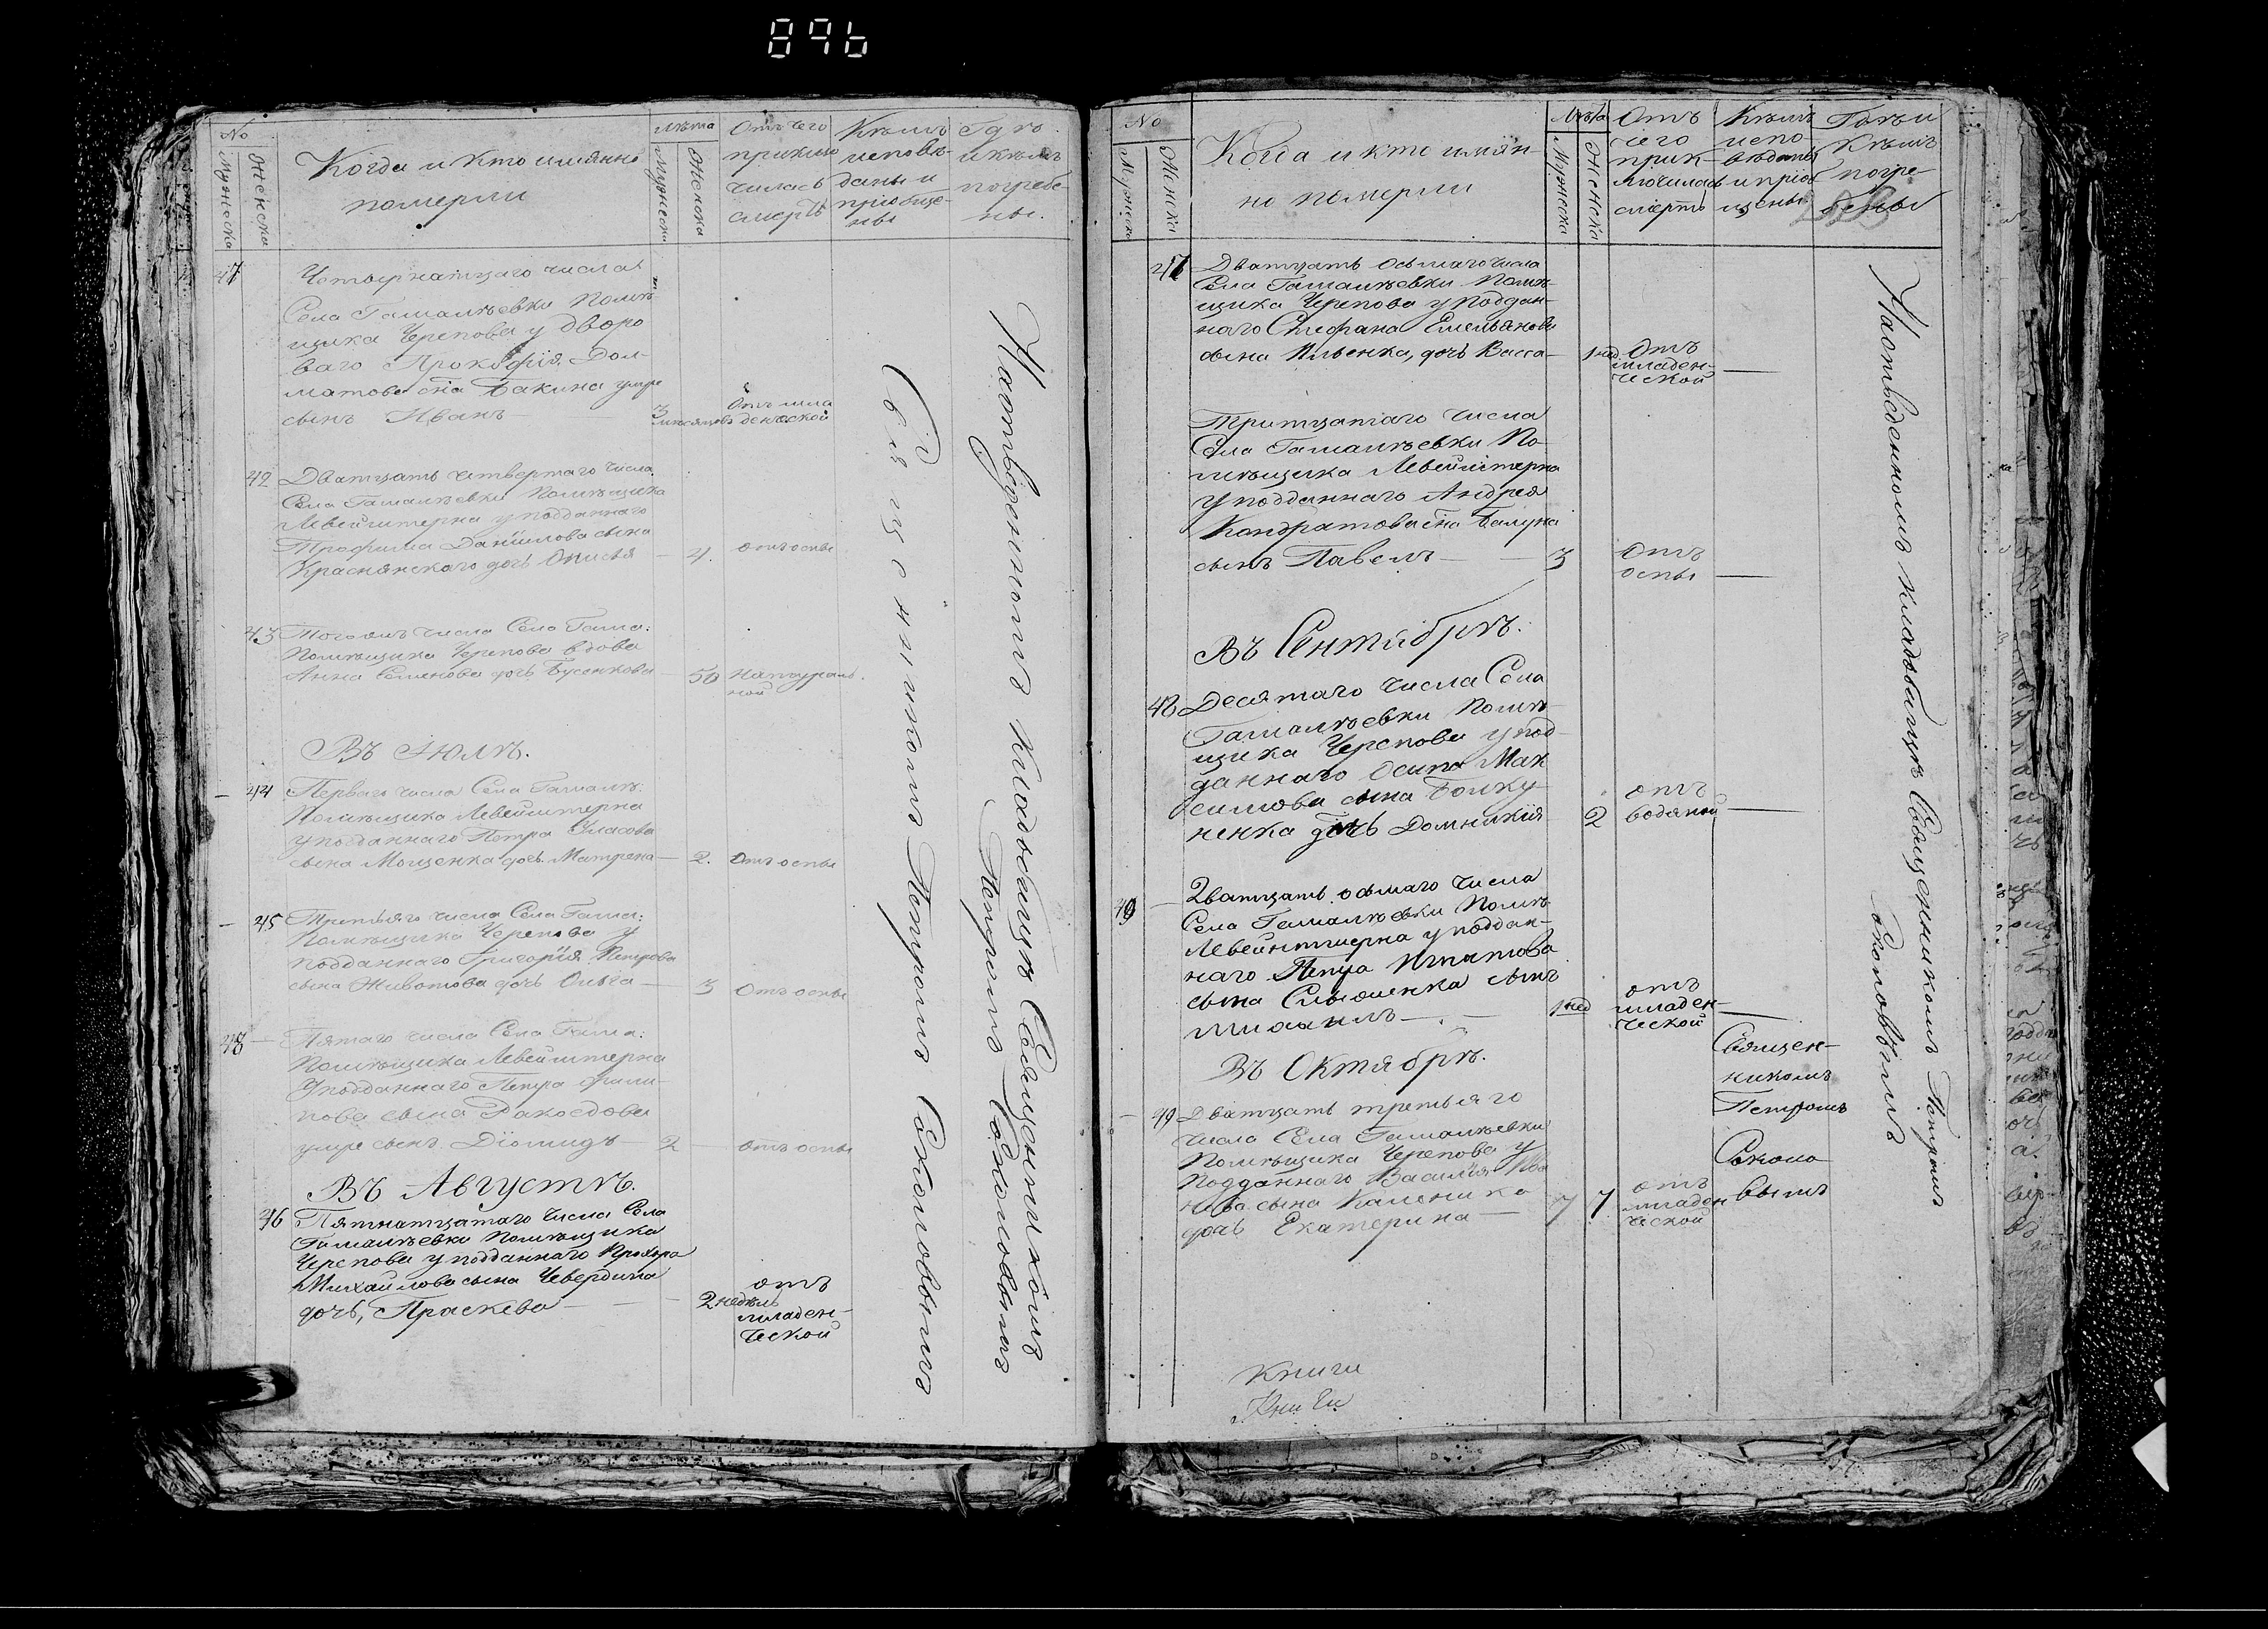 896
No
Мужеска
Женска
Когда и кто имянно
померли
лѣта
Мужеска
Женска
Отъ чего
приклю
чилась
смерть
Кѣмъ
исповѣ-
даны и
приобще-
ны
Гдѣ
и кѣмъ
погребе-
ны.
47
Четвернатцаго числа
Села Гамалѣевки Помѣ-
щика Черепова у дворо
ваго Прокофія Дол-
матова сна Бакина умре
сынъ Иванъ
3
месяцовъ
Отъ мла
денческой
42
Дватцать четвертаго числа
Села Гамалѣевки Помѣщика
Левейштерна у подданнаго
Трофима Данїилова сына
Краснянскаго дочь
4.
отъ оспы
43
Того жъ числа Села Гама:
Помѣщика Черепова вдова
Анна Семенова дочь Бусенкова
50
натураль
ной
Въ Июлѣ.
44
Перваго числа Села Гамалѣ:
Помѣщика Левейштерна
у подданнаго Петра Уласова
сына Мощенка дочь Матрена
2.
Отъ оспы
45
Третьяго числа Села Гама:
Помѣщика Черепова у
подданнаго Григорїя Петрова
сына Животова дочь Ольга
3
Отъ оспы
48
Пятаго числа Села Гама:
Помѣщика Левейштерна
У подданнаго Петра Фили-
пова сына Ракоедова
умре сынъ Дїомидъ
2
отъ оспы
Въ Августѣ.
46
Пятнатцатаго числа Села
Гамалѣевки Помѣщика
Черепова у подданнаго Прохора
Михайлова сына Чевердина
дочь, Праскева
2 недѣль
отъ
младен-
ческой
На отведенномъ кладбищѣ Священникомъ
Петромъ Соколовымъ
Священникомъ Петромъ Соколовымъ
No
Мужеска
Женска
Когда и кто имян-
но померли
Лѣта
Мужеска
Женска
Отъ
чего
прик-
лючилась
смерть
Кѣмъ
испо
вѣданы
и приоб
щены
Гдѣ и
Кѣмъ
погре-
бены
47
Дватцать осьмаго числа
Села Гамалѣевки Помѣ-
щика Черепова у поддан-
наго Стефана Емельянова
сына Ильенка, дочь Васса
1 нед
Отъ
младен-
ческой
Тритцатаго числа
Села Гамалѣевки По-
мѣщика Левейштерна
У подданнаго Андрея
Кондратова сна Балуна
сынъ Павелъ
3
Отъ
оспы
Въ Сентябрѣ:
48
Десятаго числа Села
Гамалѣевки Помѣ-
щика Черепова у под-
даннаго Осипа Мак
симова сына Болку
ненка дочь Домникїя
2
отъ
водяной
49
Дватцать осьмаго числа
Села Гамалѣевки Помѣ-
Левейнтшерна у поддан-
наго Петра Игнатова
сына сынъ
Михаилъ
1 нед
отъ
младен-
ческой
Въ Октябрѣ.
49
Дватцать третьяго
числа Села Гамалѣевки
Помѣщика Черепова у
Подданнаго Василїя Ива
нова сына Каленика
дочь Екатерина
7
7
отъ
младен
ческой
Священ-
никомъ
Петромъ
Соколо
вымъ
На отведенномъ кладбищѣ Священникомъ Петромъ
Соколовымъ
Книги
Книги